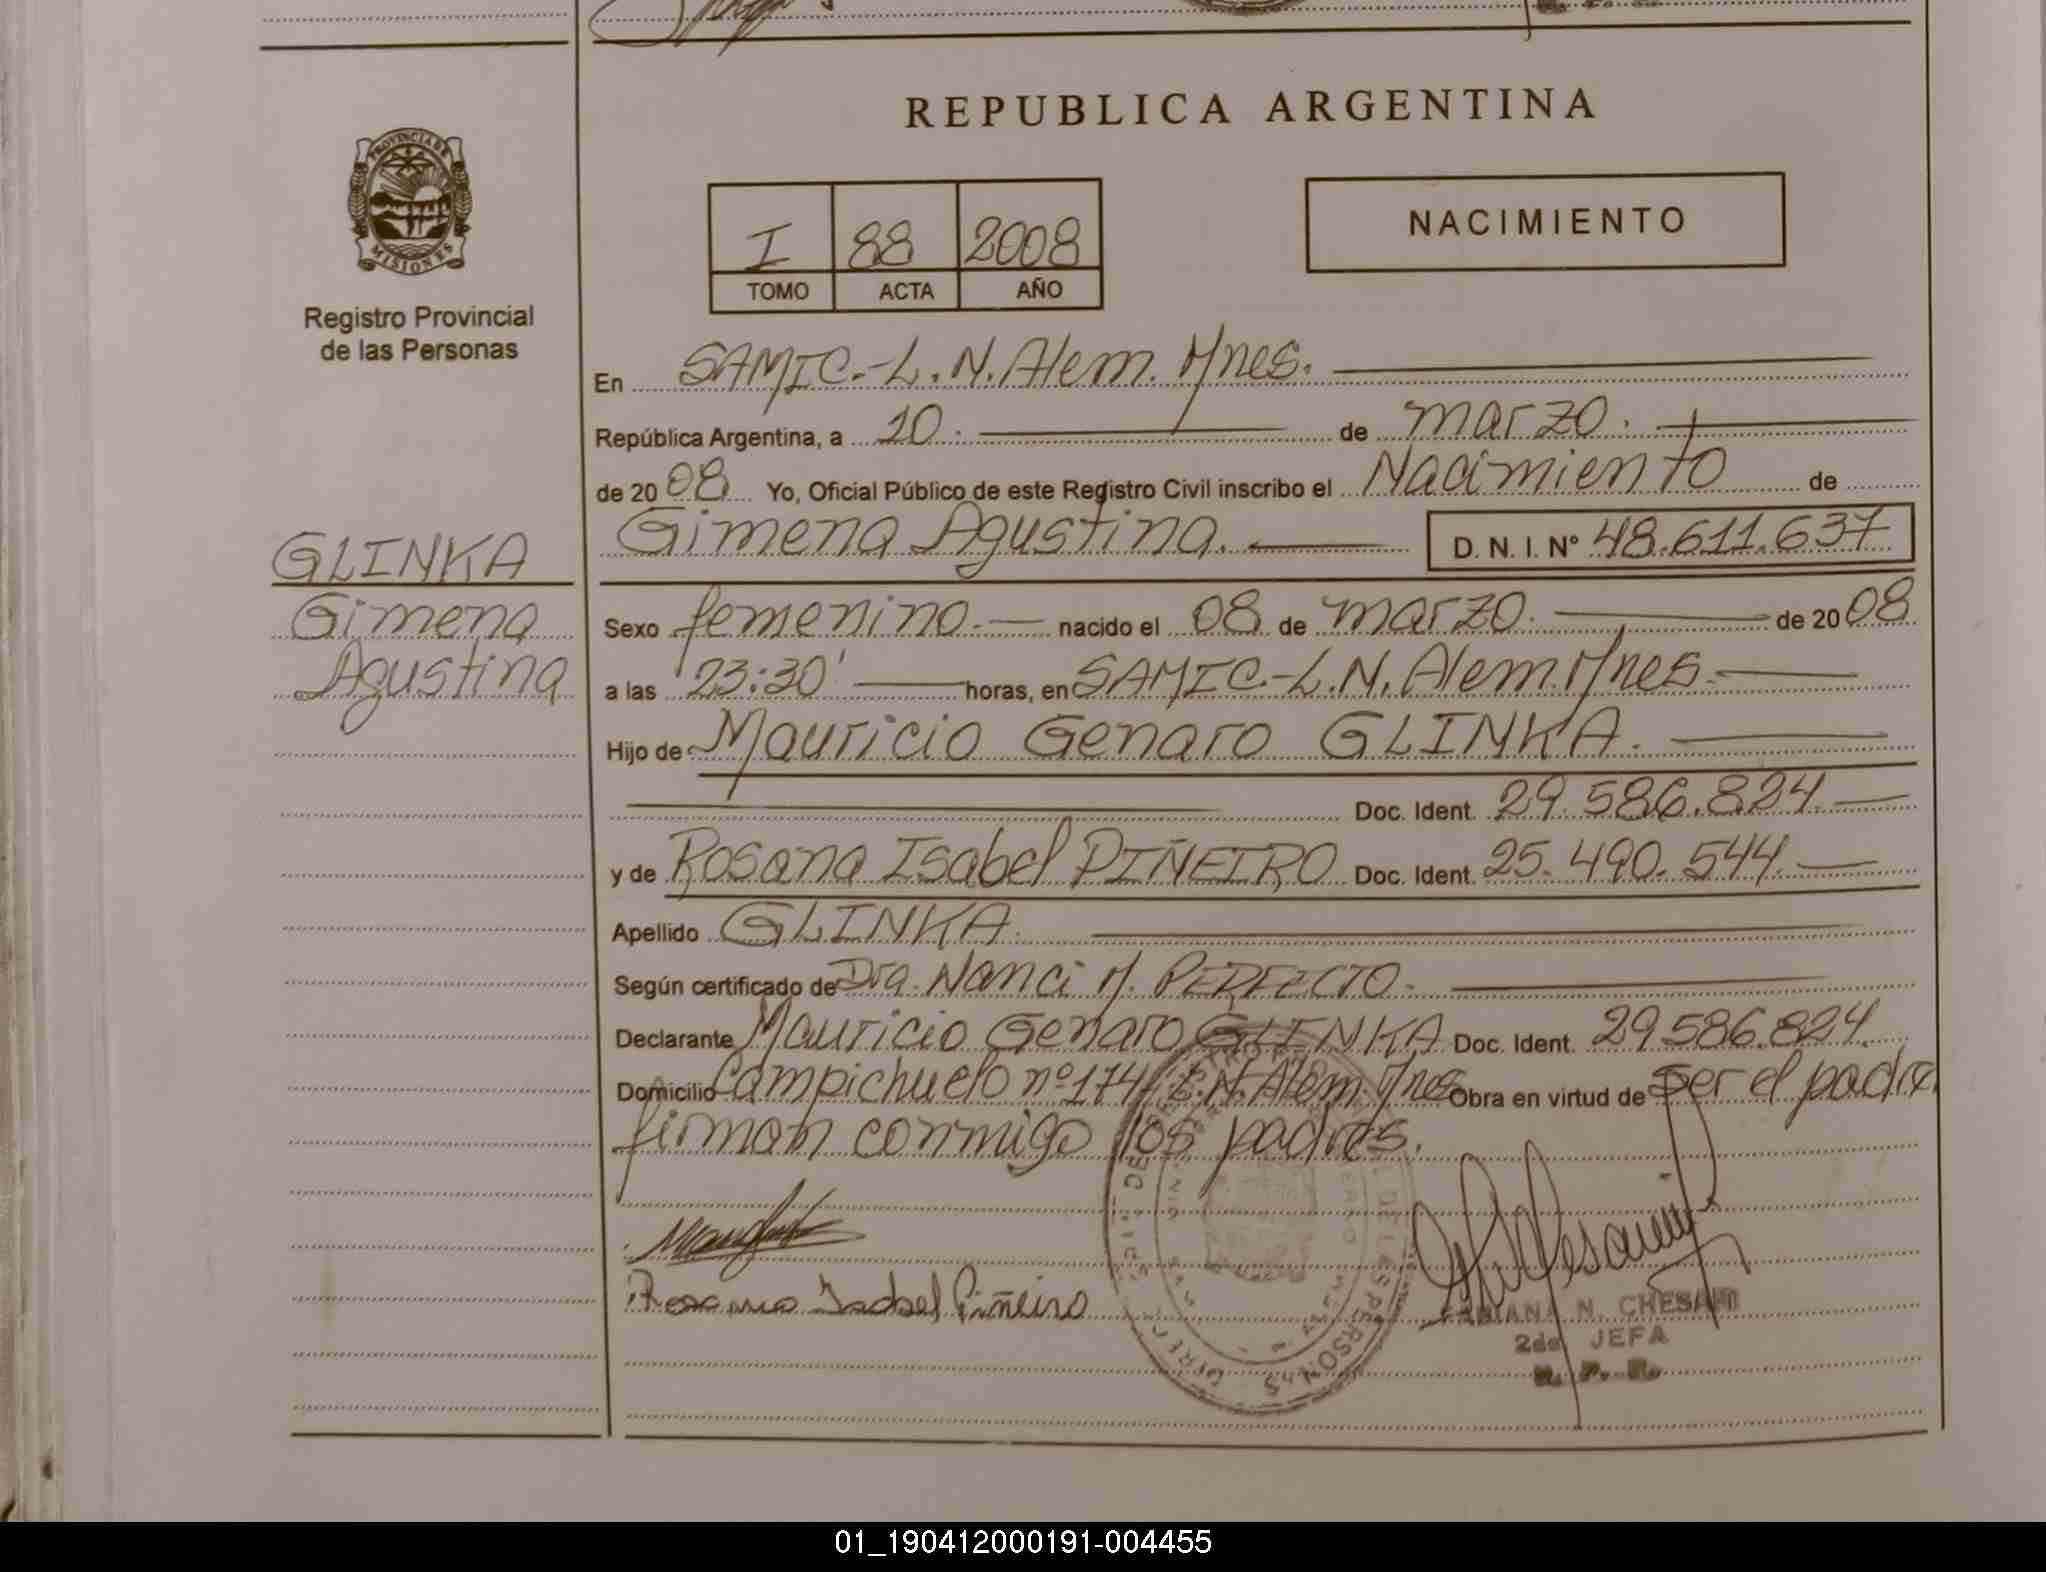 REPUBLICA ARGENTINA
PROVINCIA DE
MISIONES
Registro Provincial
de las Personas
NACIMIENTO
I 88 2008
TOMO ACTA AÑO
En SAMIC.-L.N.Alem. Mnes.
República Argentina, a 10. de marzo.
de 2008 Yo, Oficial Público de este Registro Civil inscribo el Nacimiento de
GLINKA
Gimena
Agustina
Gimena Agustina. D. N. I. Nº 48.611.637
Sexo femenino. nacido el 08 de marzo. de 2008
a las 23:30' horas, en SAMIC.-L.N. Alem. Mnes.
Hijo de Mauricio Genaro GLINKA.
Doc. Ident. 29.586.824
y de Rosana Isabel PIÑEIRO Doc. Ident. 25.490.544.
Apellido GLINKA.
Según certificado de Dra. Nanci M. PERFECTO.
Declarante Mauricio Genaro GLINKA Doc. Ident. 29586.824.
Domicilio Campichuelo nº174 L.N.Alem. Mnes Obra en virtud de ser el padre
firman conmigo los padres.
Rosana Isabel Piñeiro
DE LAS PERSONAS
FABIANA N. CHESANI
2da. JEFA
R. P. R.
01_190412000191-004455